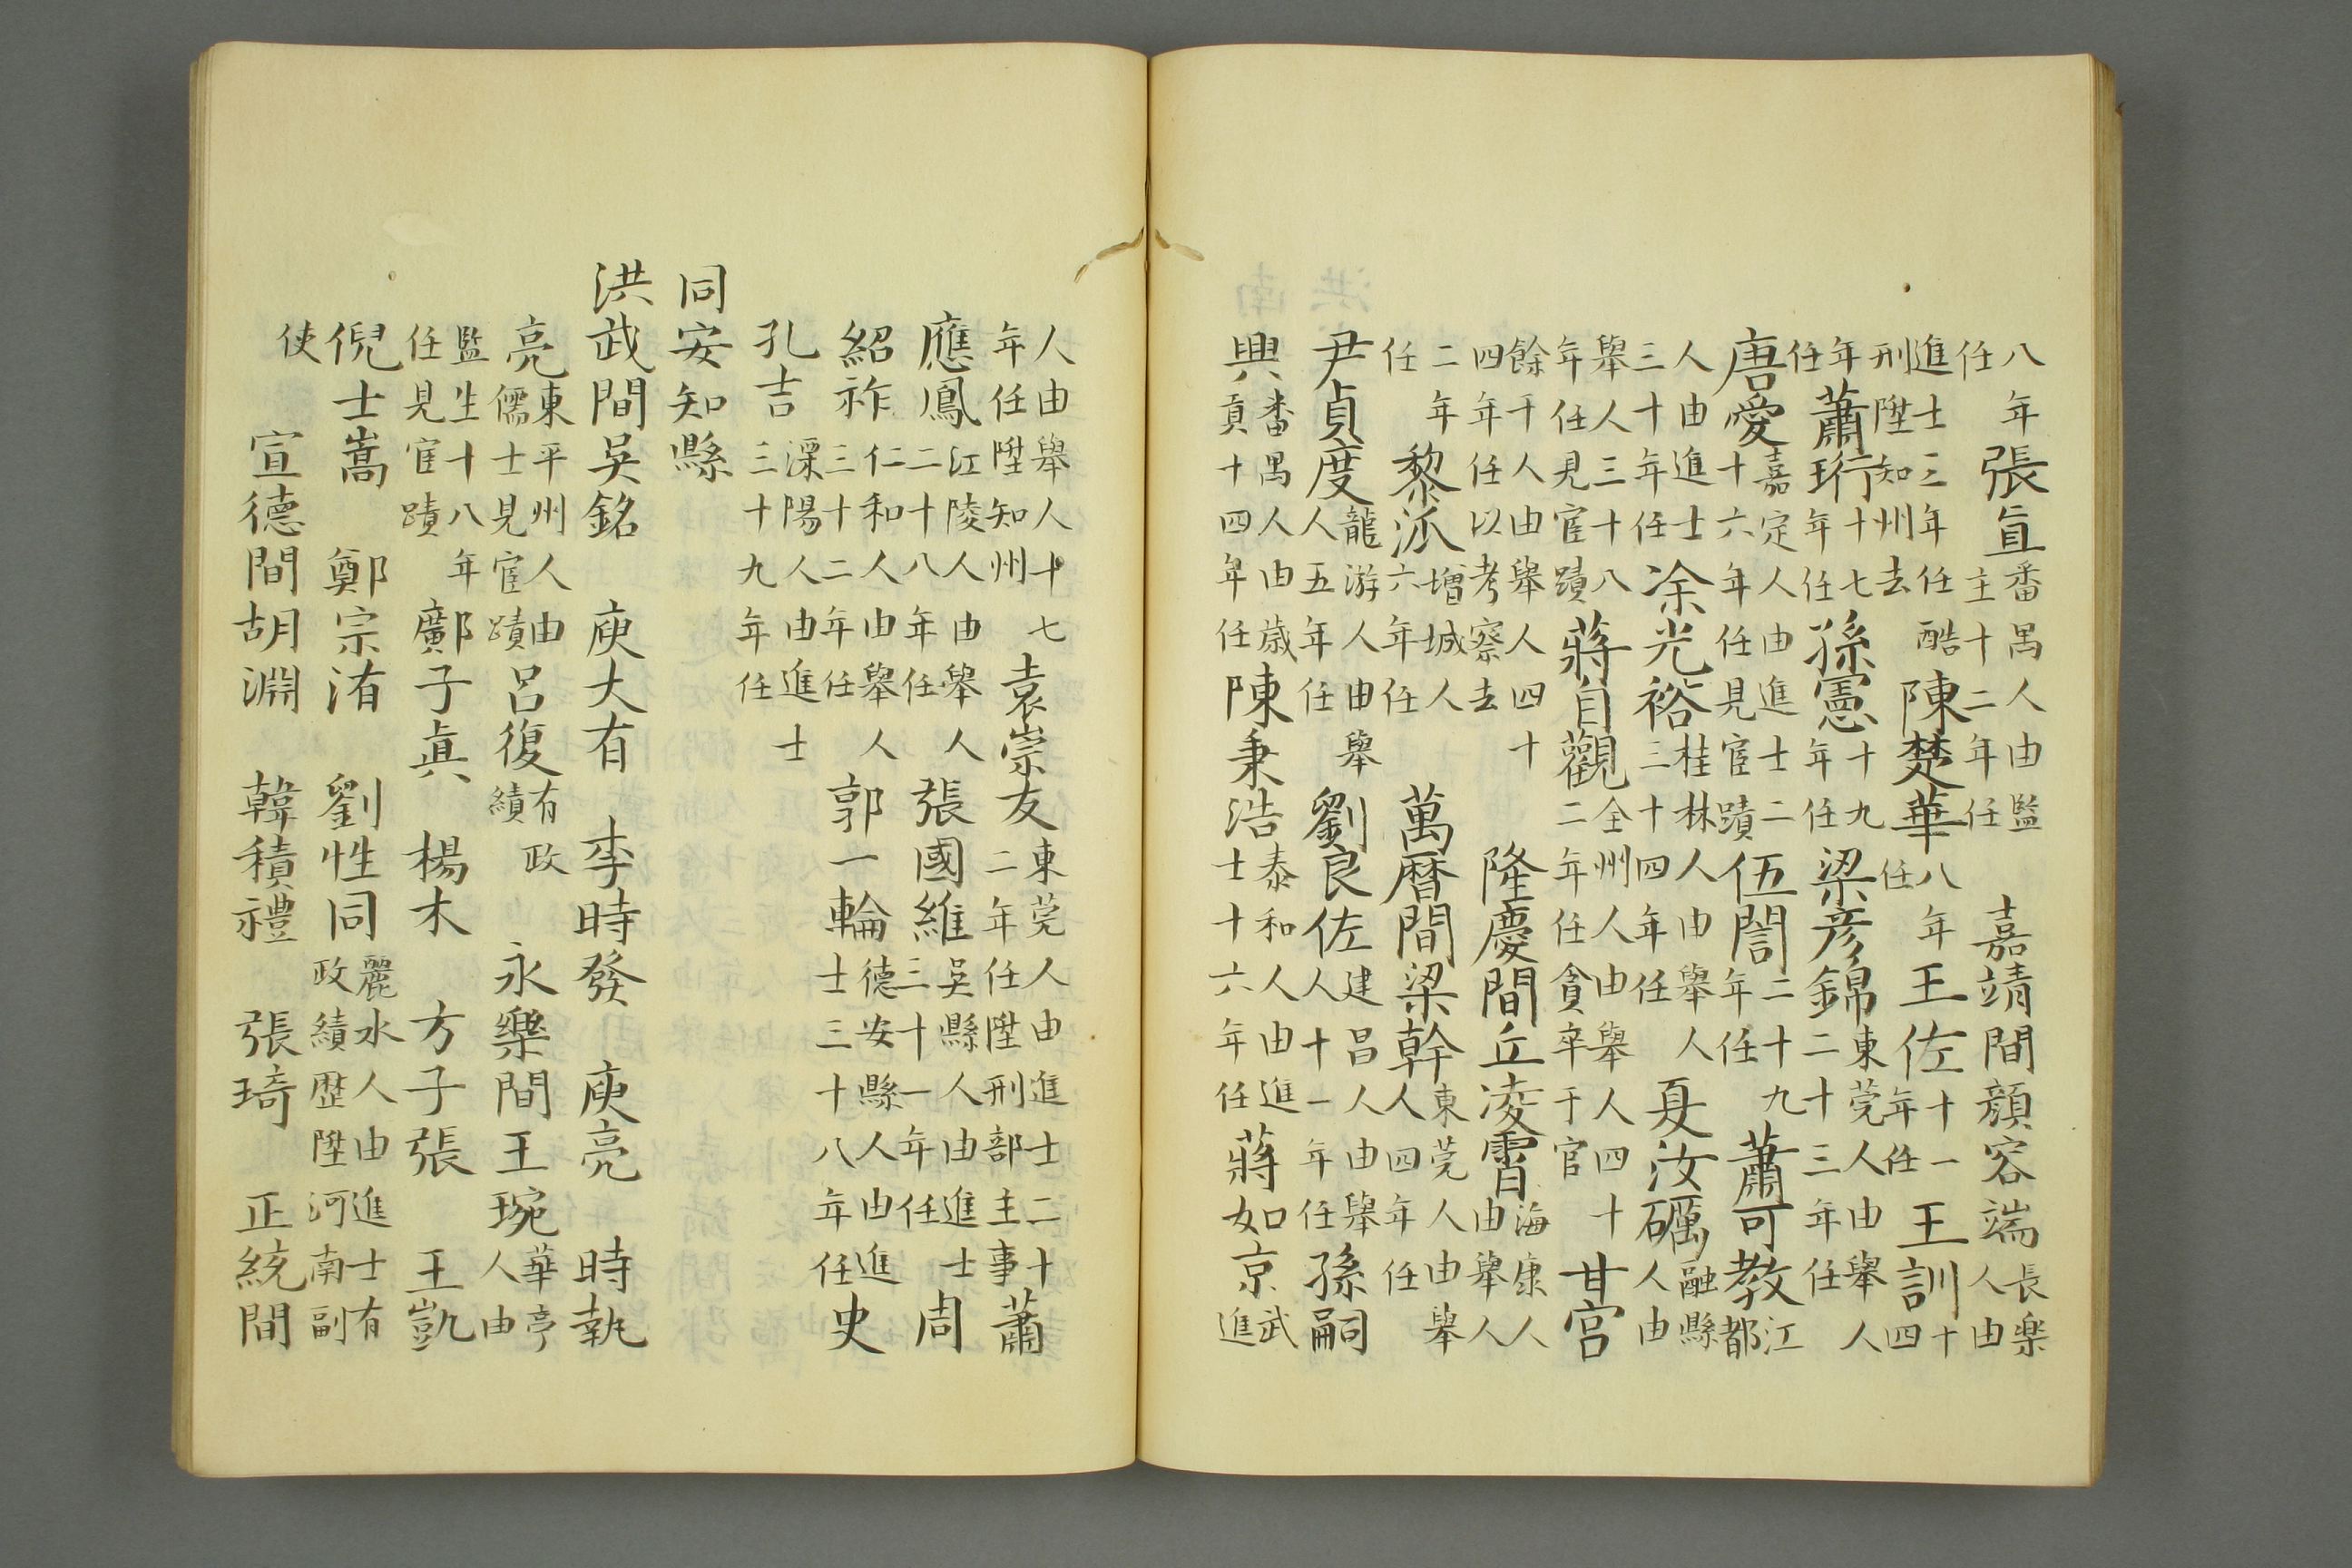 八年任張直番禺人由監主十二年任嘉靖間顏容端長樂人由
進士三年任酷刑陞知州去陳楚華八年任王佐十一年任王訓十四
年任蕭珩十七年任孫憲十九年任梁彥錦東莞人由舉人二十三年任
唐愛嘉定人由進士二十六年任見宦蹟伍誾二十九年任蕭可教江都
人由進士三十年任凃光裕桂林人由舉人三十四年任夏汝礪融縣人由
舉人三十八年任見宦蹟蔣自觀全州人由舉人四十二年任貪卒于官甘宮
餘干人由舉人四十四年任以考察去隆慶間丘凌霄海康人由舉人
二年任黎泒增城人六年任萬曆間梁幹東莞人由舉人四年任
尹貞度龍游人由舉人五年任劉良佐建昌人由舉人十一年任孫嗣
興番禺人由歲貢十四年任陳秉浩泰和人由進士十六年任蔣如京武進
人由舉人十七年任陞知州袁崇友東莞人由進士二十二年任陞刑部主事蕭
應鳳江陵人由舉人二十八年任張國維吳縣人由進士三十一年任周
紹祚仁和人由舉人三十二年任郭一輪德安縣人由進士三十八年任史
孔吉溧陽人由進士三十九年任
同安知縣
洪武間吳銘 庾大有 李時發 庾亮 時執
亮東平州人由儒士見宦蹟呂復有政績 永樂間王琬華亭人由
監生十八年任見宦蹟鄺子眞 楊木 方子張 王凱
倪士嵩 鄭宗洧 劉性同麗水人由進士有政績歷陞河南副
使 宣德間胡淵 韓積禮 張琦 正統間